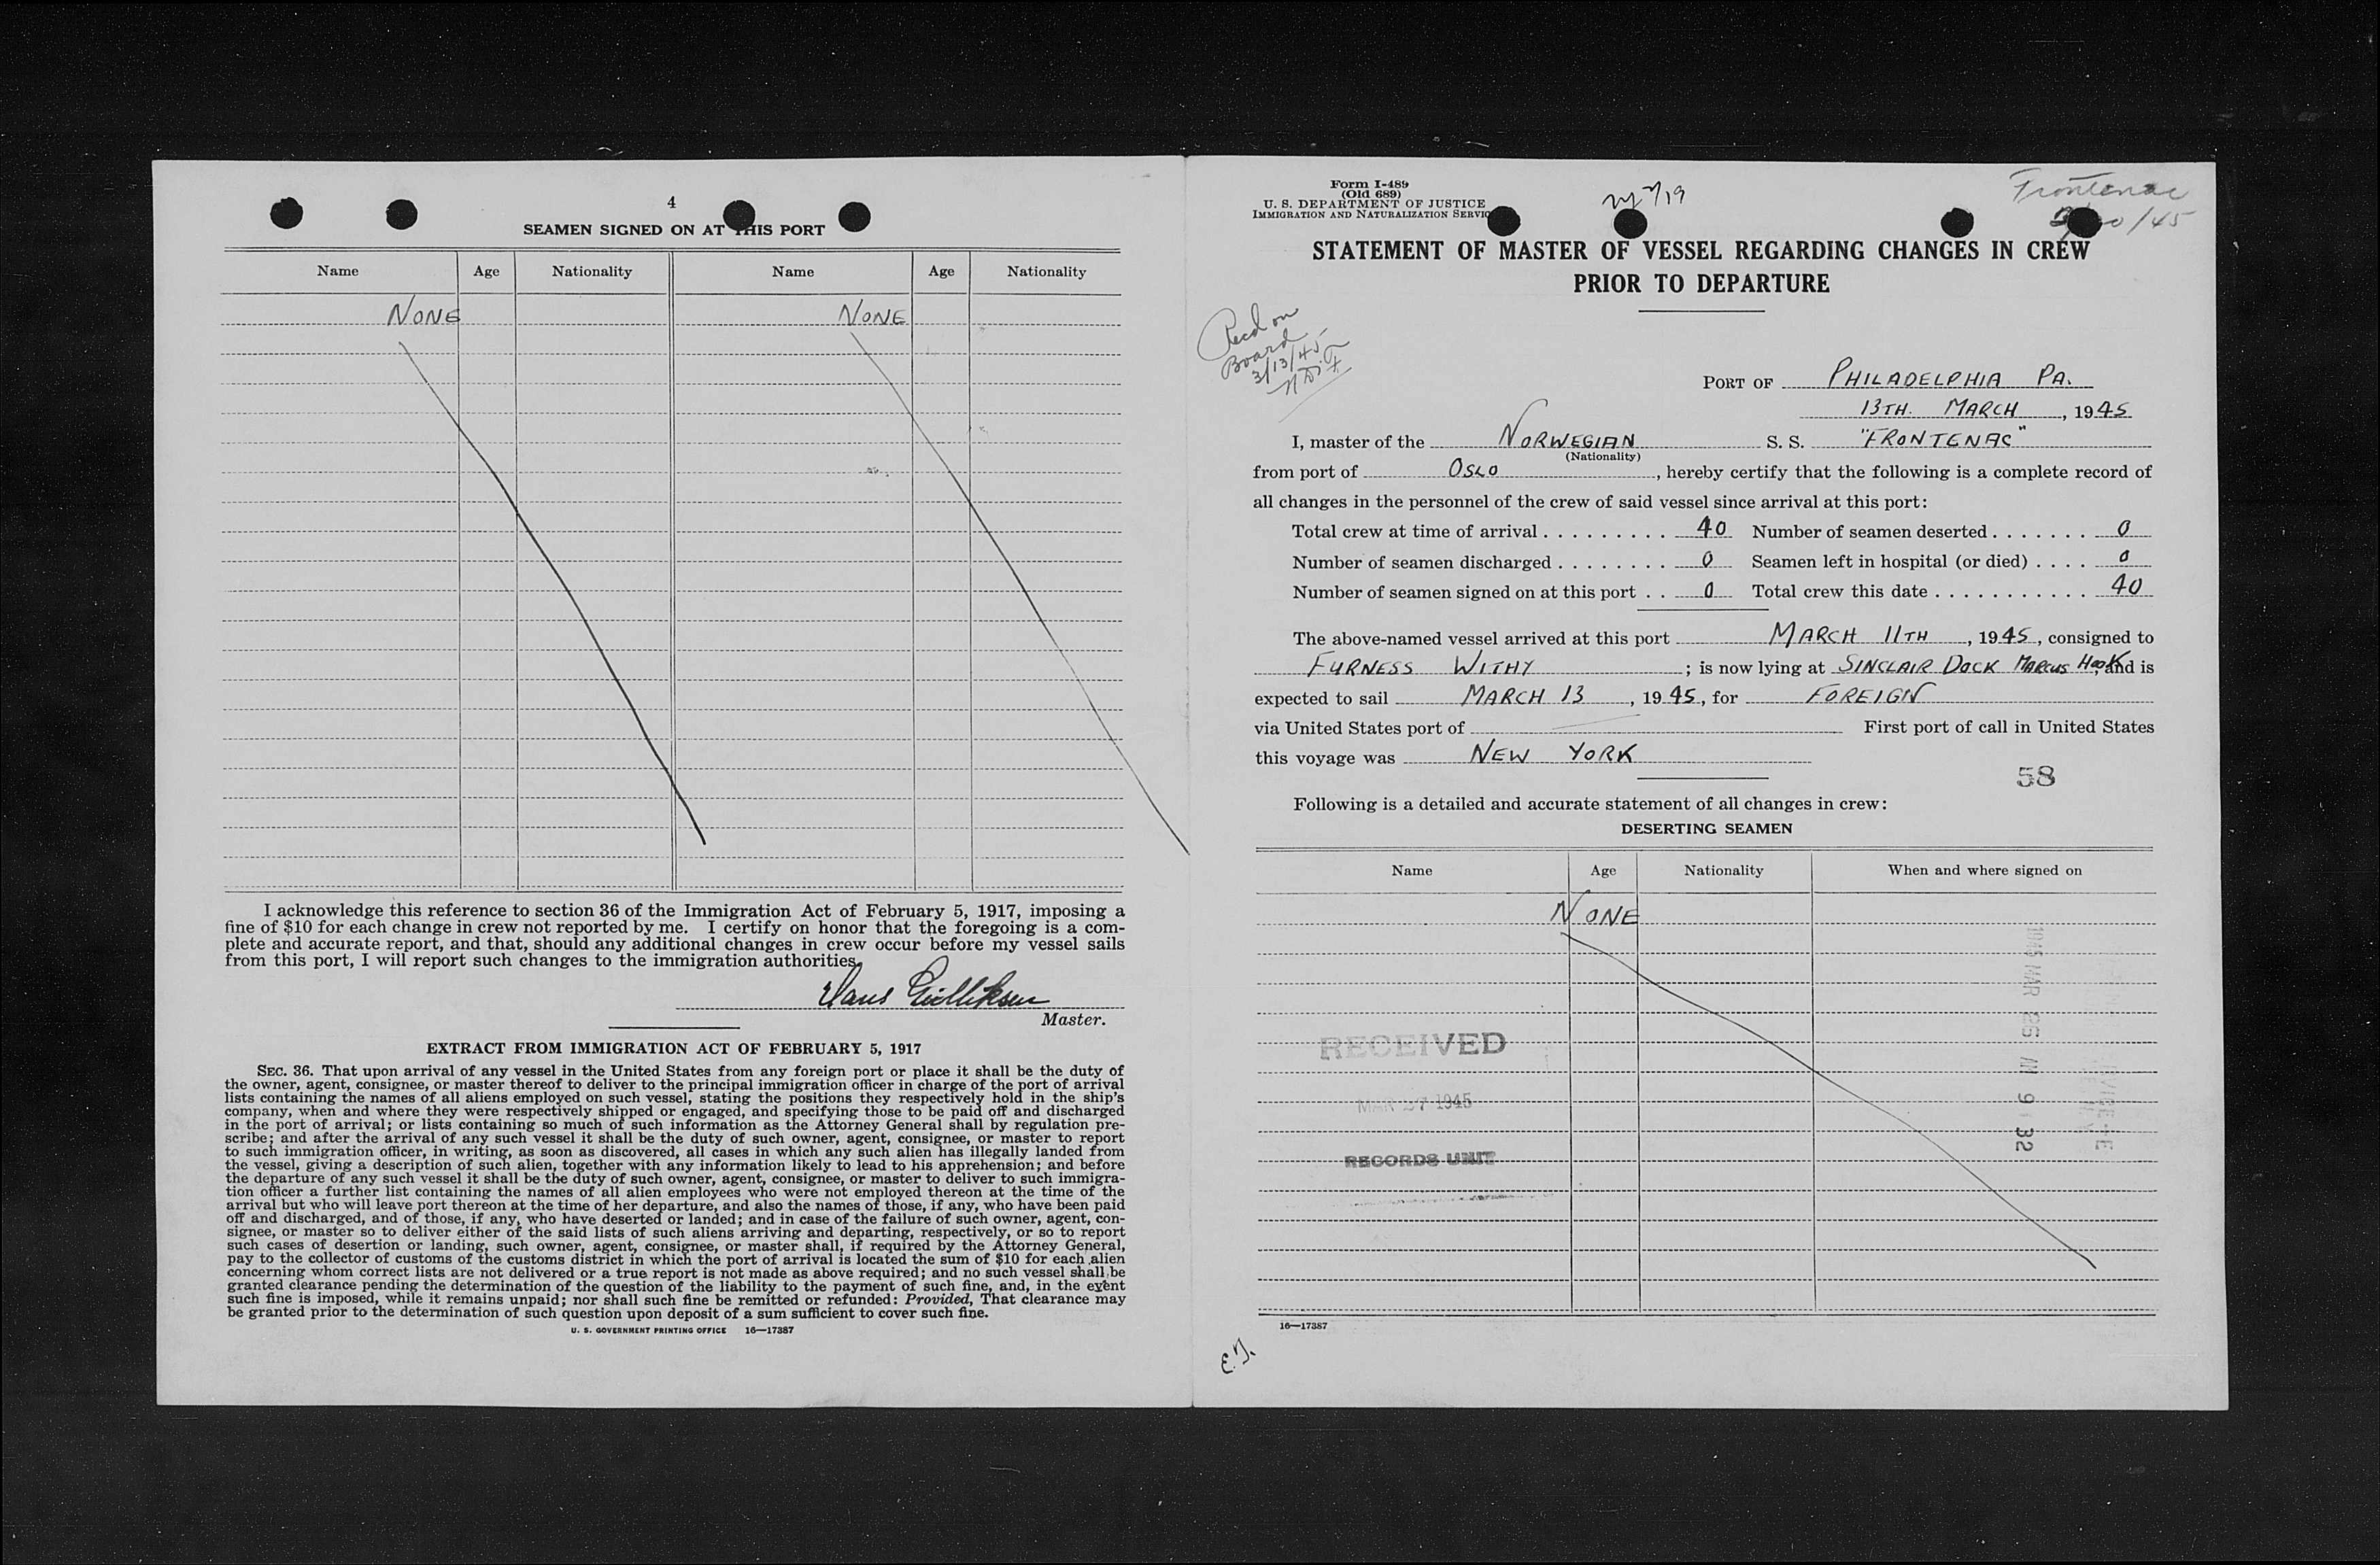 4
SEAMEN SIGNED ON AT THIS PORT
Name Age Nationality Name Age Nationality
NONE NONE
I acknowledge this reference to section 36 of the Immigration Act of February 5, 1917, imposing a
fine of $10 for each change in crew not reported by me. I certify on honor that the foregoing is a com-
plete and accurate report, and that, should any additional changes in crew occur before my vessel sails
from this port, I will report such changes to the immigration authorities.
Hans Gulliksen
Master.
EXTRACT FROM IMMIGRATION ACT OF FEBRUARY 5, 1917
SEC. 36. That upon arrival of any vessel in the United States from any foreign port or place it shall be the duty of
the owner, agent, consignee, or master thereof to deliver to the principal immigration officer in charge of the port of arrival
lists containing the names of all aliens employed on such vessel, stating the positions they respectively hold in the ship's
company, when and where they were respectively shipped or engaged, and specifying those to be paid off and discharged
in the port of arrival; or lists containing so much of such information as the Attorney General shall by regulation pre-
scribe; and after the arrival of any such vessel it shall be the duty of such owner, agent, consignee, or master to report
to such immigration officer, in writing, as soon as discovered, all cases in which any such alien has illegally landed from
the vessel, giving a description of such alien, together with any information likely to lead to his apprehension; and before
the departure of any such vessel it shall be the duty of such owner, agent, consignee, or master to deliver to such immigra-
tion officer a further list containing the names of all alien employees who were not employed thereon at the time of the
arrival but who will leave port thereon at the time of her departure, and also the names of those, if any, who have been paid
off and discharged, and of those, if any, who have deserted or landed; and in case of the failure of such owner, agent, con-
signee, or master so to deliver either of the said lists of such aliens arriving and departing, respectively, or so to report
such cases of desertion or landing, such owner, agent, consignee, or master shall, if required by the Attorney General,
pay to the collector of customs of the customs district in which the port of arrival is located the sum of $10 for each alien
concerning whom correct lists are not delivered or a true report is not made as above required; and no such vessel shall be
granted clearance pending the determination of the question of the liability to the payment of such fine, and, in the event
such fine is imposed, while it remains unpaid; nor shall such fine be remitted or refunded: Provided, That clearance may
be granted prior to the determination of such question upon deposit of a sum sufficient to cover such fine.
U. S. GOVERNMENT PRINTING OFFICE 16—17387
Form I-489
(Old 689)
U. S. DEPARTMENT OF JUSTICE
IMMIGRATION AND NATURALIZATION SERVICE
Frontenac
/45
STATEMENT OF MASTER OF VESSEL REGARDING CHANGES IN CREW
PRIOR TO DEPARTURE
Recd on
Board
3/13/45
PORT OF PHILADELPHIA PA.
13TH. MARCH, 1945
I, master of the NORWEGIAN S. S. "FRONTENAC"
(Nationality)
from port of OSLO, hereby certify that the following is a complete record of
all changes in the personnel of the crew of said vessel since arrival at this port:
Total crew at time of arrival . . . . . . . . . 40 Number of seamen deserted . . . . . . . 0
Number of seamen discharged . . . . . . . . 0 Seamen left in hospital (or died) . . . . 0
Number of seamen signed on at this port . . 0 Total crew this date . . . . . . . . . . . 40
The above-named vessel arrived at this port MARCH 11TH, 1945, consigned to
FURNESS WITHY; is now lying at SINCLAIR DOCK MARCUS HOOK, and is
expected to sail MARCH 13, 1945, for FOREIGN
via United States port of First port of call in United States
this voyage was NEW YORK
58
Following is a detailed and accurate statement of all changes in crew:
DESERTING SEAMEN
Name Age Nationality When and where signed on
NONE
RECEIVED
MAR 27 1945
RECORDS UNIT
1945 MAR 26 AM 9 32
16—17387